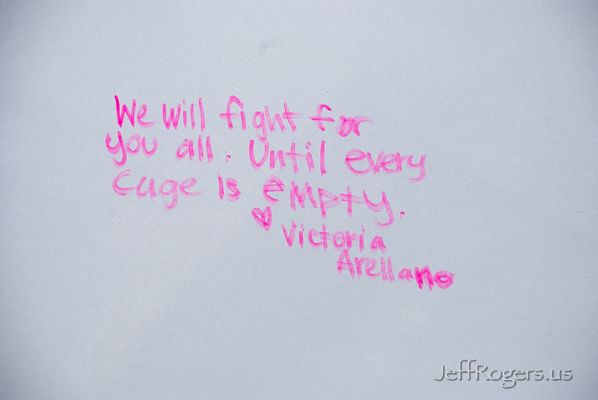 We will fight for
you all. Until every
cage is empty.
♡ Victoria
Arellano
JeffRogers.us